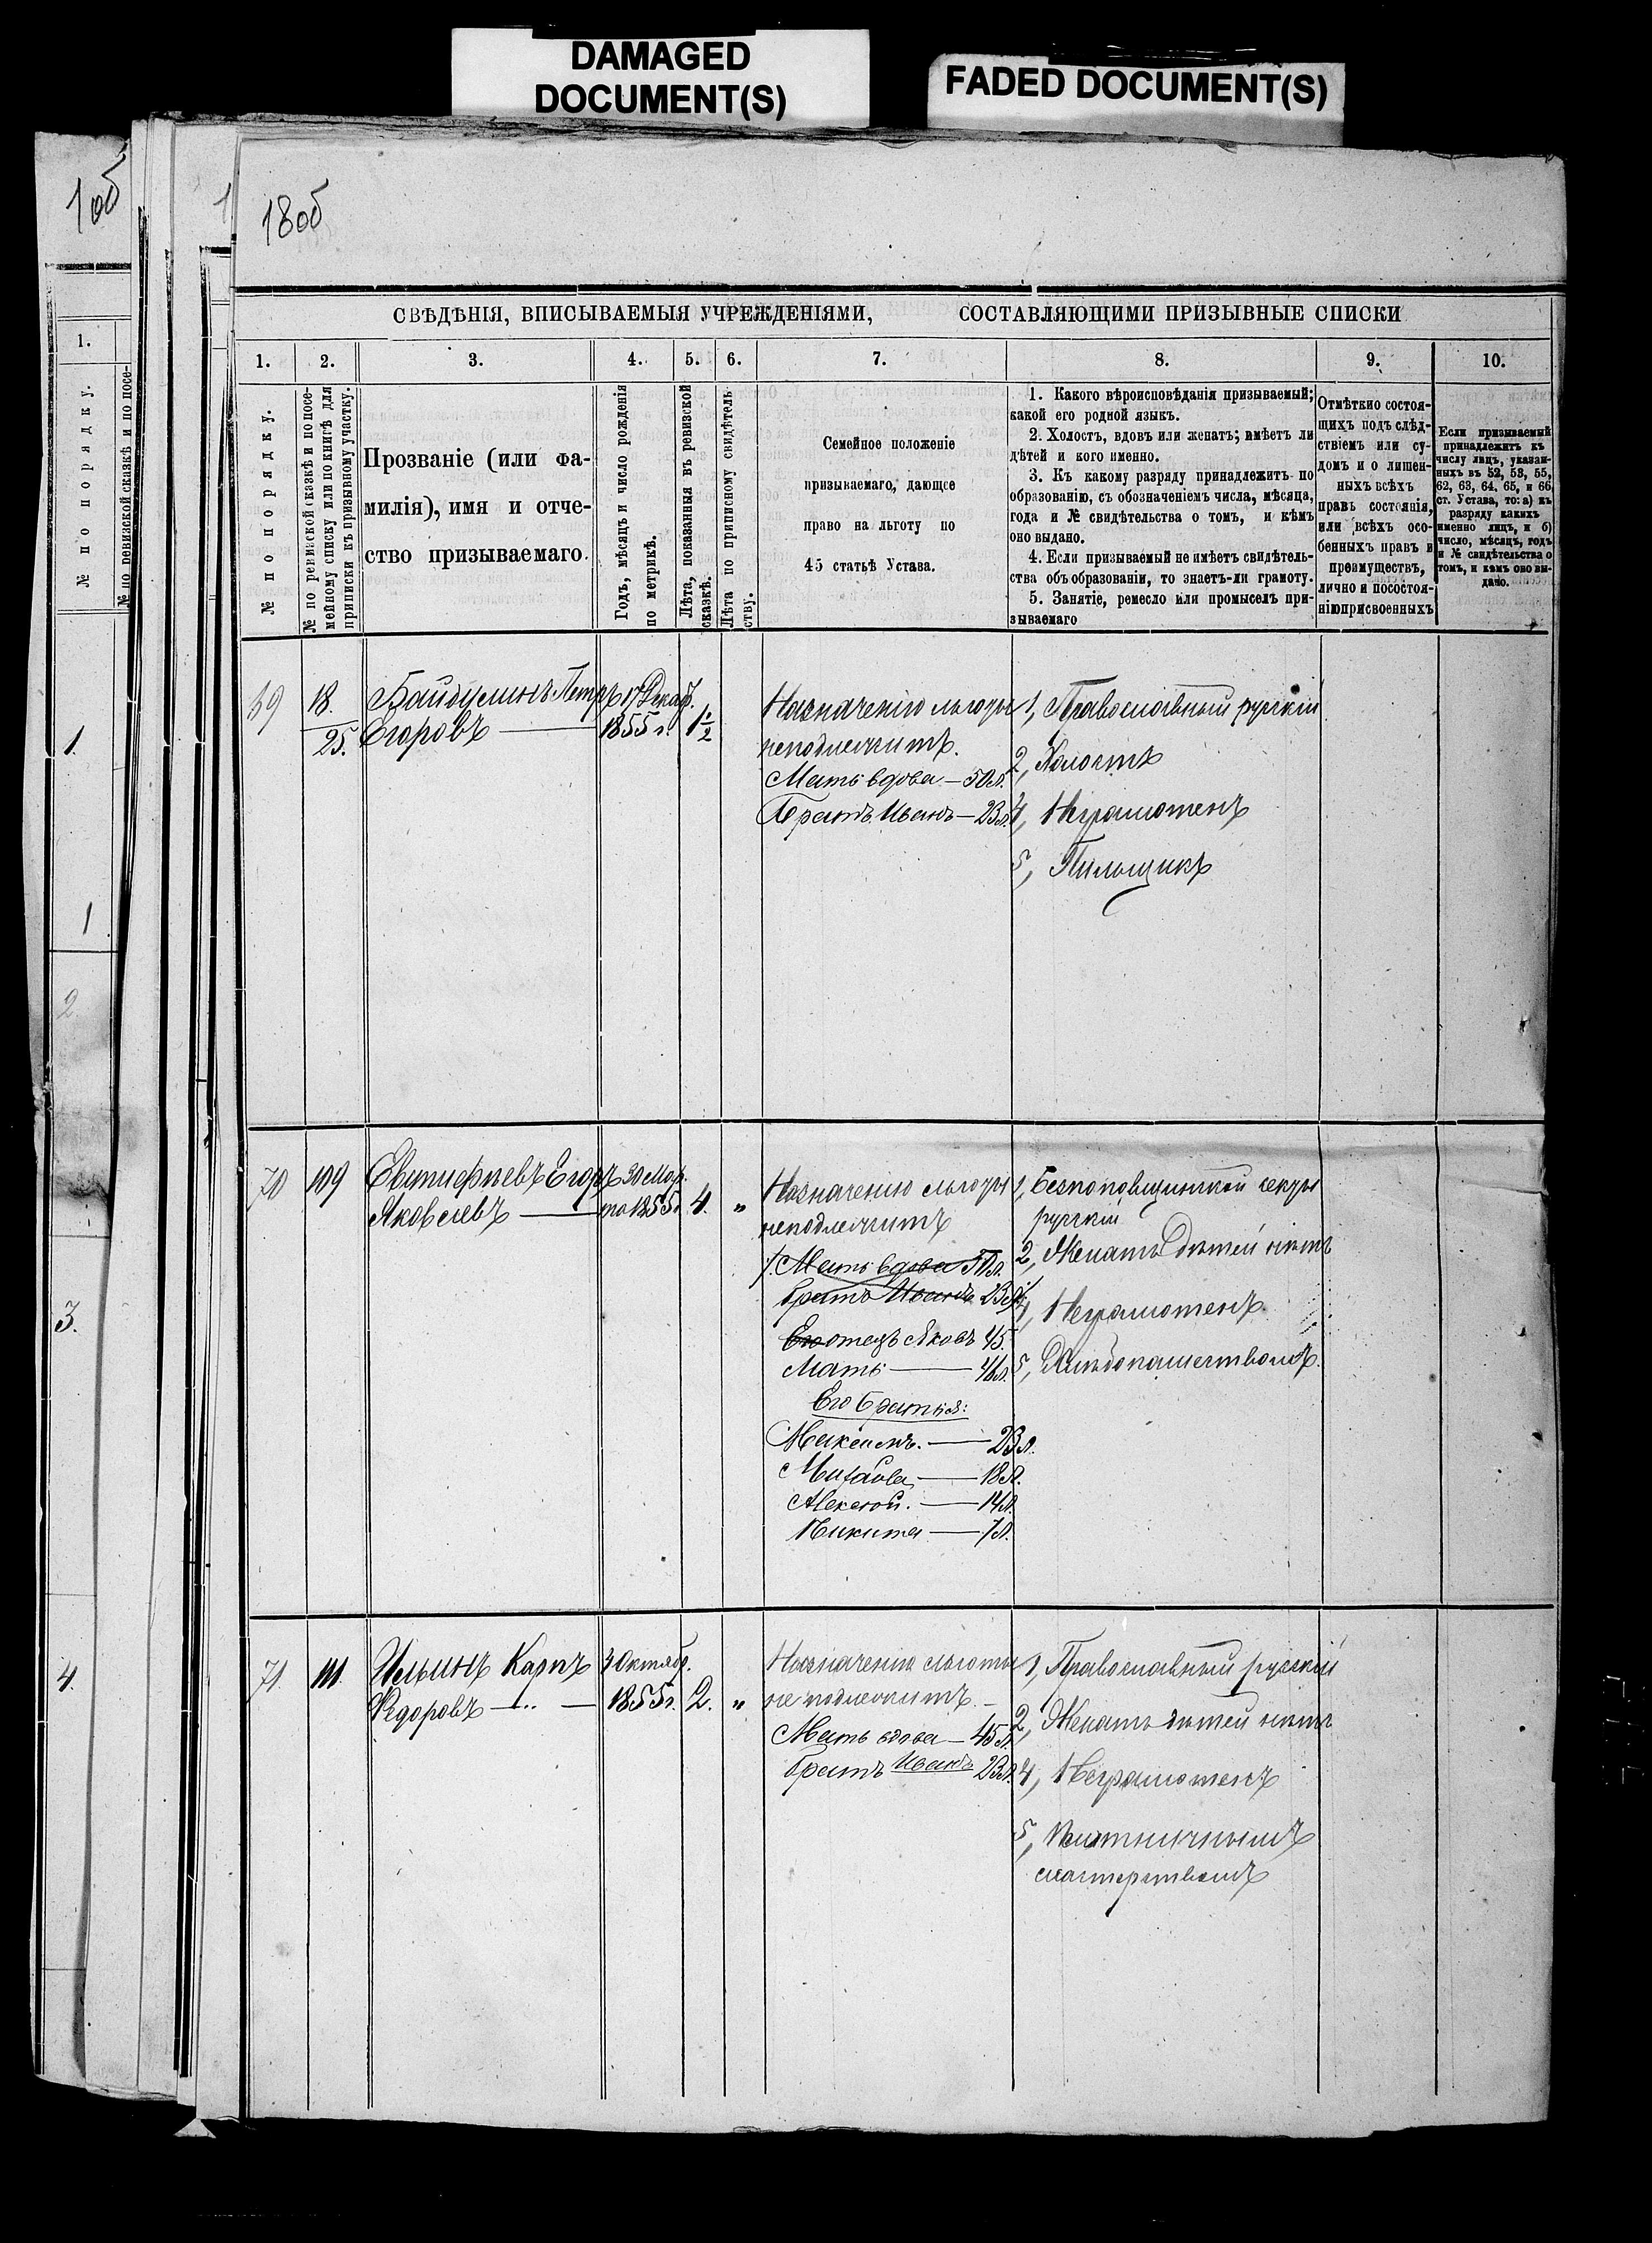 DAMAGED
DOCUMENT(S)
FADED DOCUMENT(S)
1об
18об
1.
№ по порядку.
№ по ревизской сказкѣ и по посе-
1.
1
2
3.
4.
СВѢДѢНІЯ, ВПИСЫВАЕМЫЯ УЧРЕЖДЕНІЯМИ, СОСТАВЛЯЮЩИМИ ПРИЗЫВНЫЕ СПИСКИ
1. 2. 3. 4. 5. 6. 7. 8. 9. 10.
№ по порядку.
№ по ревизской сказкѣ и по посе-
мейному списку или по книгѣ для
приписки къ призывному участку.
Прозваніе (или фа-
милія), имя и отче-
ство призываемаго.
Годъ, мѣсяцъ и число рожденія
по метрикѣ.
Лѣта, показанныя въ ревизской
сказкѣ.
Лѣта по приписному свидѣтель-
ству.
Семейное положеніе
призываемаго, дающее
право на льготу по
45 статьѣ Устава.
1. Какого вѣроисповѣданія призываемый;
какой его родной языкъ.
2. Холостъ, вдовъ или женатъ; имѣетъ ли
дѣтей и кого именно.
3. Къ какому разряду принадлежитъ по
образованію, съ обозначеніемъ числа, мѣсяца,
года и № свидѣтельства о томъ, и кѣмъ
оно выдано.
4. Если призываемый не имѣетъ свидѣтель-
ства объ образованіи, то знаетъ-ли грамоту.
5. Занятіе, ремесло или промыселъ при-
зываемаго
Отмѣтки о состоя-
щихъ подъ слѣд-
ствіемъ или су-
домъ и о лишен-
ныхъ всѣхъ
правъ состоянія,
или всѣхъ осо-
бенныхъ правъ и
преимуществъ,
лично и по состоя-
нію присвоенныхъ
Если призываемый
принадлежитъ къ
числу лицъ, указан-
ныхъ въ 52, 53, 55,
62, 63, 64, 65, и 66
ст. Устава, то: а) къ
разряду какихъ
именно лицъ, и б)
число, мѣсяцъ, годъ
и № свидѣтельства о
томъ, и кѣмъ оно вы-
дано.
69 18. Байдулинъ Петръ 17 Декаб.
25. Егоровъ — 1855 г. 1½
Назначенію льготы
неподлежитъ.
Мать вдова — 50 л.
Братъ Иванъ — 23 л.
1, Православный русскій
2, Холостъ
4, Неграмотенъ
5, Пильщикъ
70 109 Евтифіевъ Егоръ 30 Мар-
Яковлевъ — та 1855 г. 4. „
Назначенію льготы
неподлежитъ
Мать вдова 50 л.
братъ Иванъ 23 л.
Его отецъ Яковъ 45.
Мать — 46 л.
Его братья:
Максимъ. — 23 л.
— 18 л.
Алексей. — 14 л.
Никита — 7 л.
1, Безпоповщинской секты
русскій
2, Женатъ дѣтей нѣтъ
4, Неграмотенъ.
5, Хлѣбопашествомъ.
71. 111. Ильинъ Карпъ 3 Октябр.
Федоровъ — 1855 г. 2. „
Назначенію льготы
не подлежитъ. —
Мать вдова — 45 л.
братъ Иванъ 23 л.
1, Православный русскій
2, Женатъ дѣтей нѣтъ
4, Неграмотенъ
5,
мастерствомъ